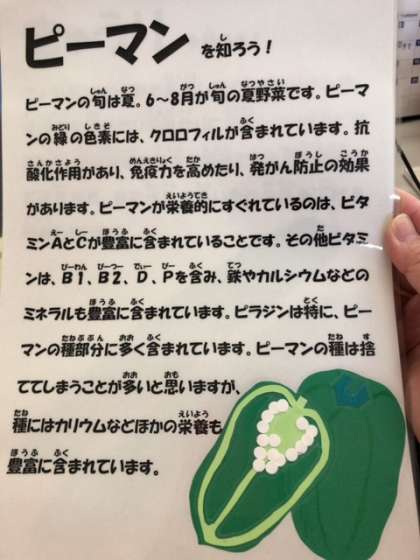 ピーマン を知ろう！
ピーマンの旬は夏。6～8月が旬の夏野菜です。ピーマ
ンの緑の色素には、クロロフィルが含まれています。抗
酸化作用があり、免疫力を高めたり、発がん防止の効果
があります。ピーマンが栄養的にすぐれているのは、ビタ
ミンAとCが豊富に含まれていることです。その他ビタミ
ンは、B1、B2、D、Pを含み、鉄やカルシウムなどの
ミネラルも豊富に含まれています。ピラジンは特に、ピー
マンの種部分に多く含まれています。ピーマンの種は捨
ててしまうことが多いと思いますが、
種にはカリウムなどほかの栄養も
豊富に含まれています。